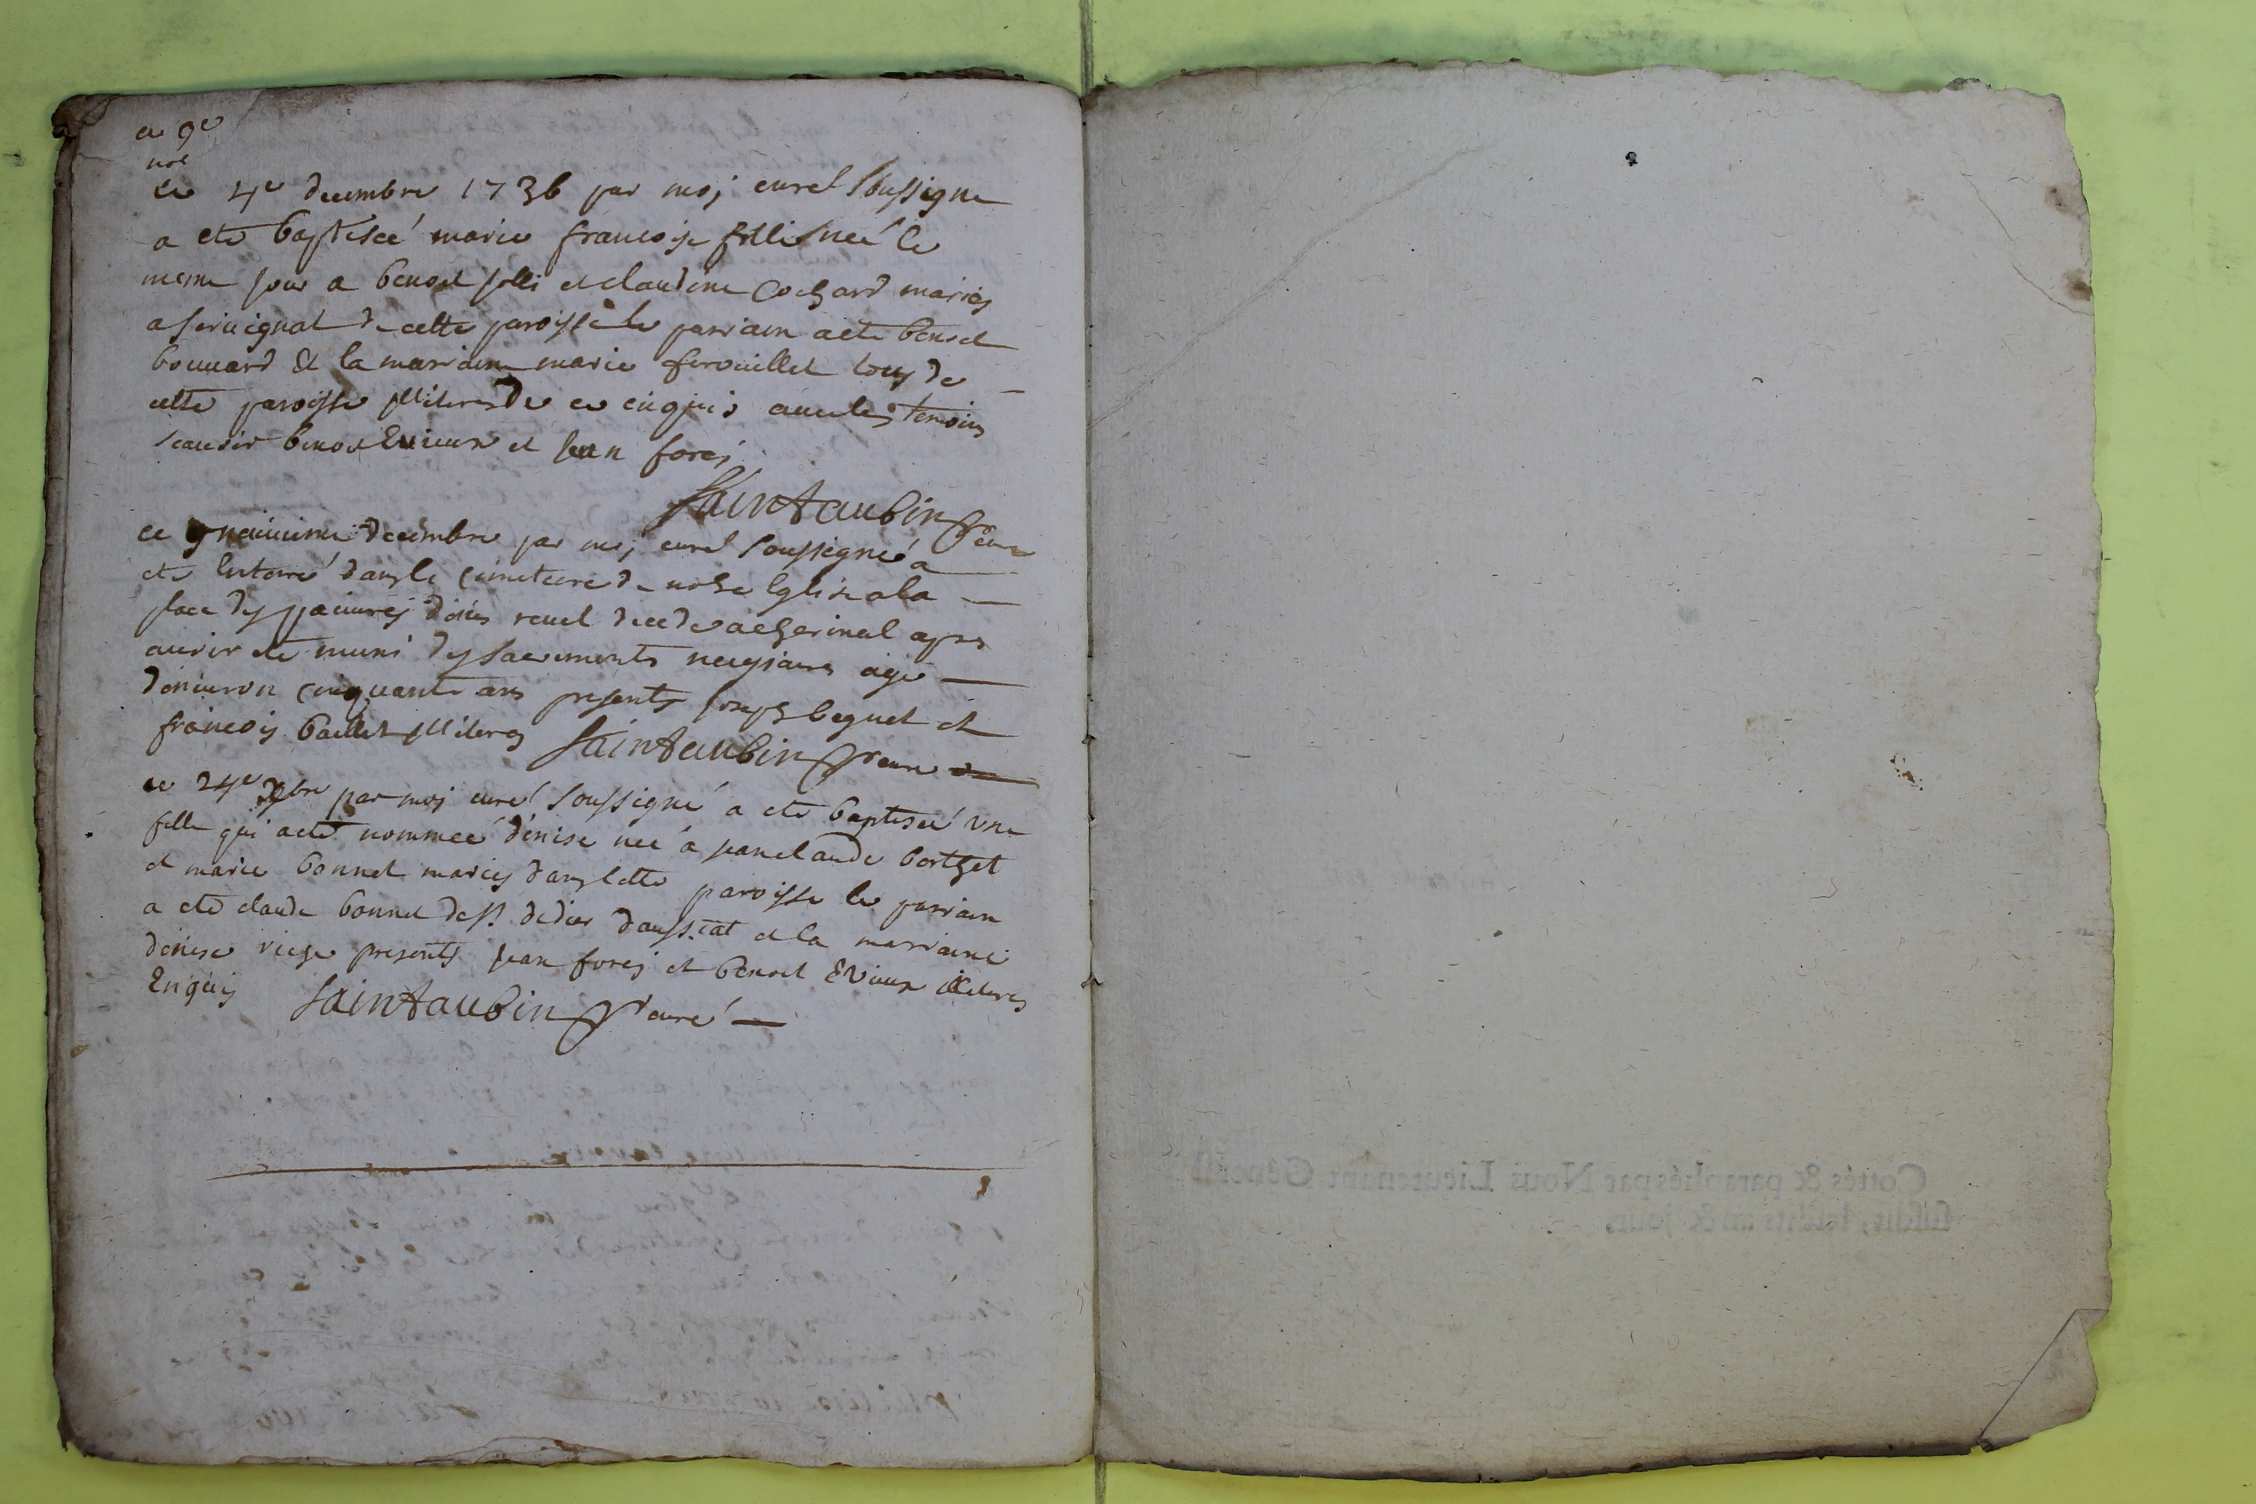 ce 9e
ce 4e decembre 1736 par moj curé soussigne
a ete baptiseé marie francoise fille neé le
meme jour a benoit jolli et claudine Cochard mariés
a de cette paroisse le parrain a ete benoit
bouuard et la marraine marie ferouillet tous de
cette paroisse illiteres de ce enquis auec les temoins
scauoir benoit Euieux et jean forej
Saintaubin curé
ce decembre par moj curé soussigné a
ete enterré dans le cimetiere de notre Eglise a la
place des pauures denis reuel decedé a cherinal apres
auoir ete muni des sacrements necessaires agé
denuiron cinquante ans presents joseph beguet et
francois baillet illiteres Saintaubin curé
ce 24e xbre par moj curé soussigné a ete baptiseé une
fille qui a ete nommeé dénise neé á jean claude borthet
et marie bonnet mariés dans cette paroisse le parrain
a ete claude bonnet de st didier daussiat et la marraine
dénise presents jean forej et benoit Evieux illiteres
Enquis Saintaubin curé
Cottés & paraphés par Nous Lieutenant Général
susdit, lesdits an & jour